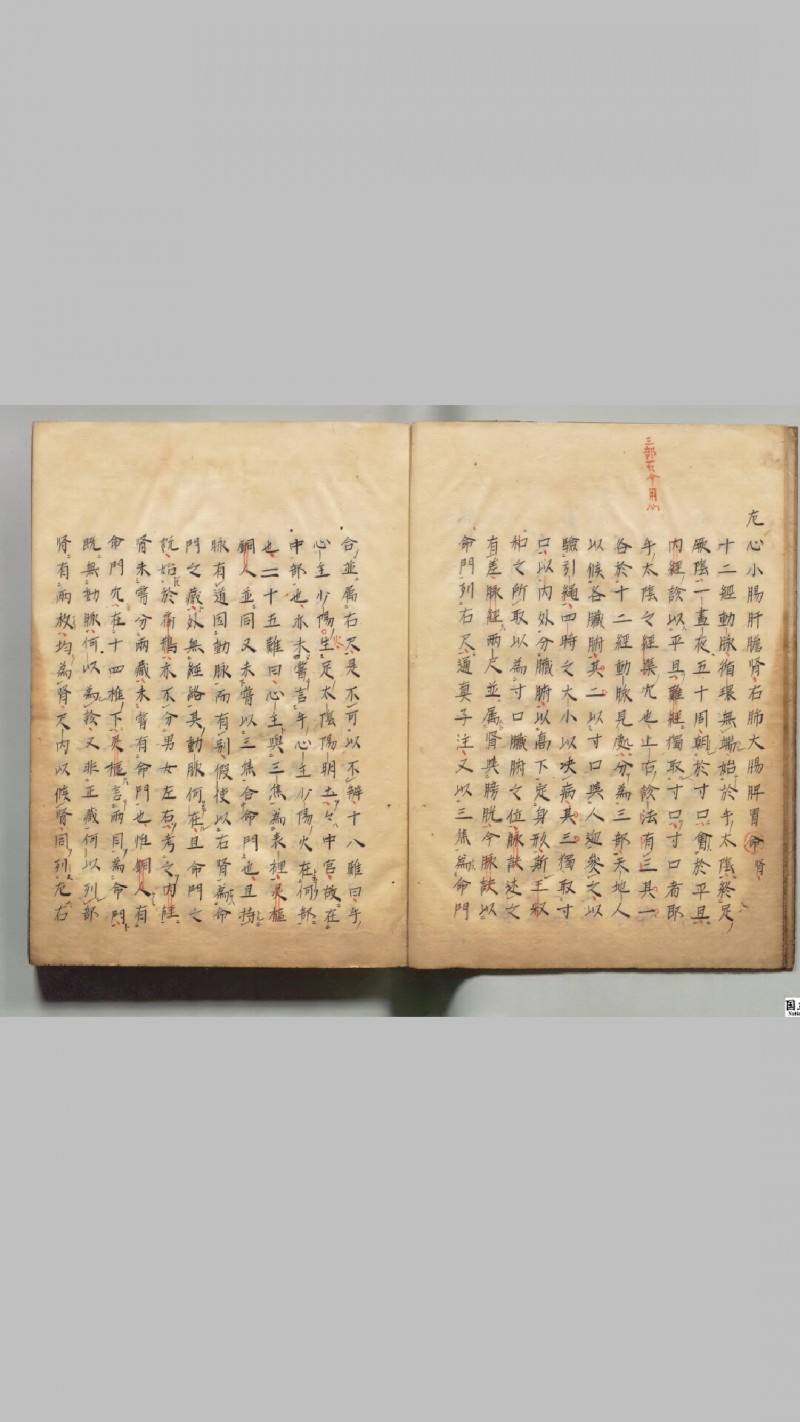 左心小腸肝膽腎右肺大腸脾胃命腎
十二經動脉循環無端始於手太陰終足
厥陰一晝夜五十周朝於寸口會於平旦
内經診以平旦難經獨取寸口寸口者即
手太陰之經渠穴也止右診法有三其一
各於十二經動脉見處分為三部天地人
以候各臟腑其二以寸口與人迎參之以
驗引繩四時之大小以决病其三獨取寸
口以内外分臟腑以高下定身形斯王叔
和之所取以為寸口臟腑之位脉訣述之
有差脉經兩尺並属腎與膀胱今脉訣以
命門列右尺通真子注又以三焦為命門
合並属右尺是不可以不辨十八難曰手
心主少陽火生足太陰陽明土々中宫故在
中部也亦未嘗言手心主少陽火在何部
也二十五難曰心主與三焦為表裡灵樞
銅人並同又未嘗以三焦合命門也且持
脉有道因動脉而有别假使以右腎為命
門之藏外無經絡其動脉何在且命門之
説始於扁鵲亦不分男女左右考之内經
腎未嘗分兩藏未嘗有命門也惟銅人有
命門穴在十四椎下灵樞言兩目為命門
既無動脉何以為診又非正藏何以列部
腎有兩枚均為腎尺内以候腎同列左右